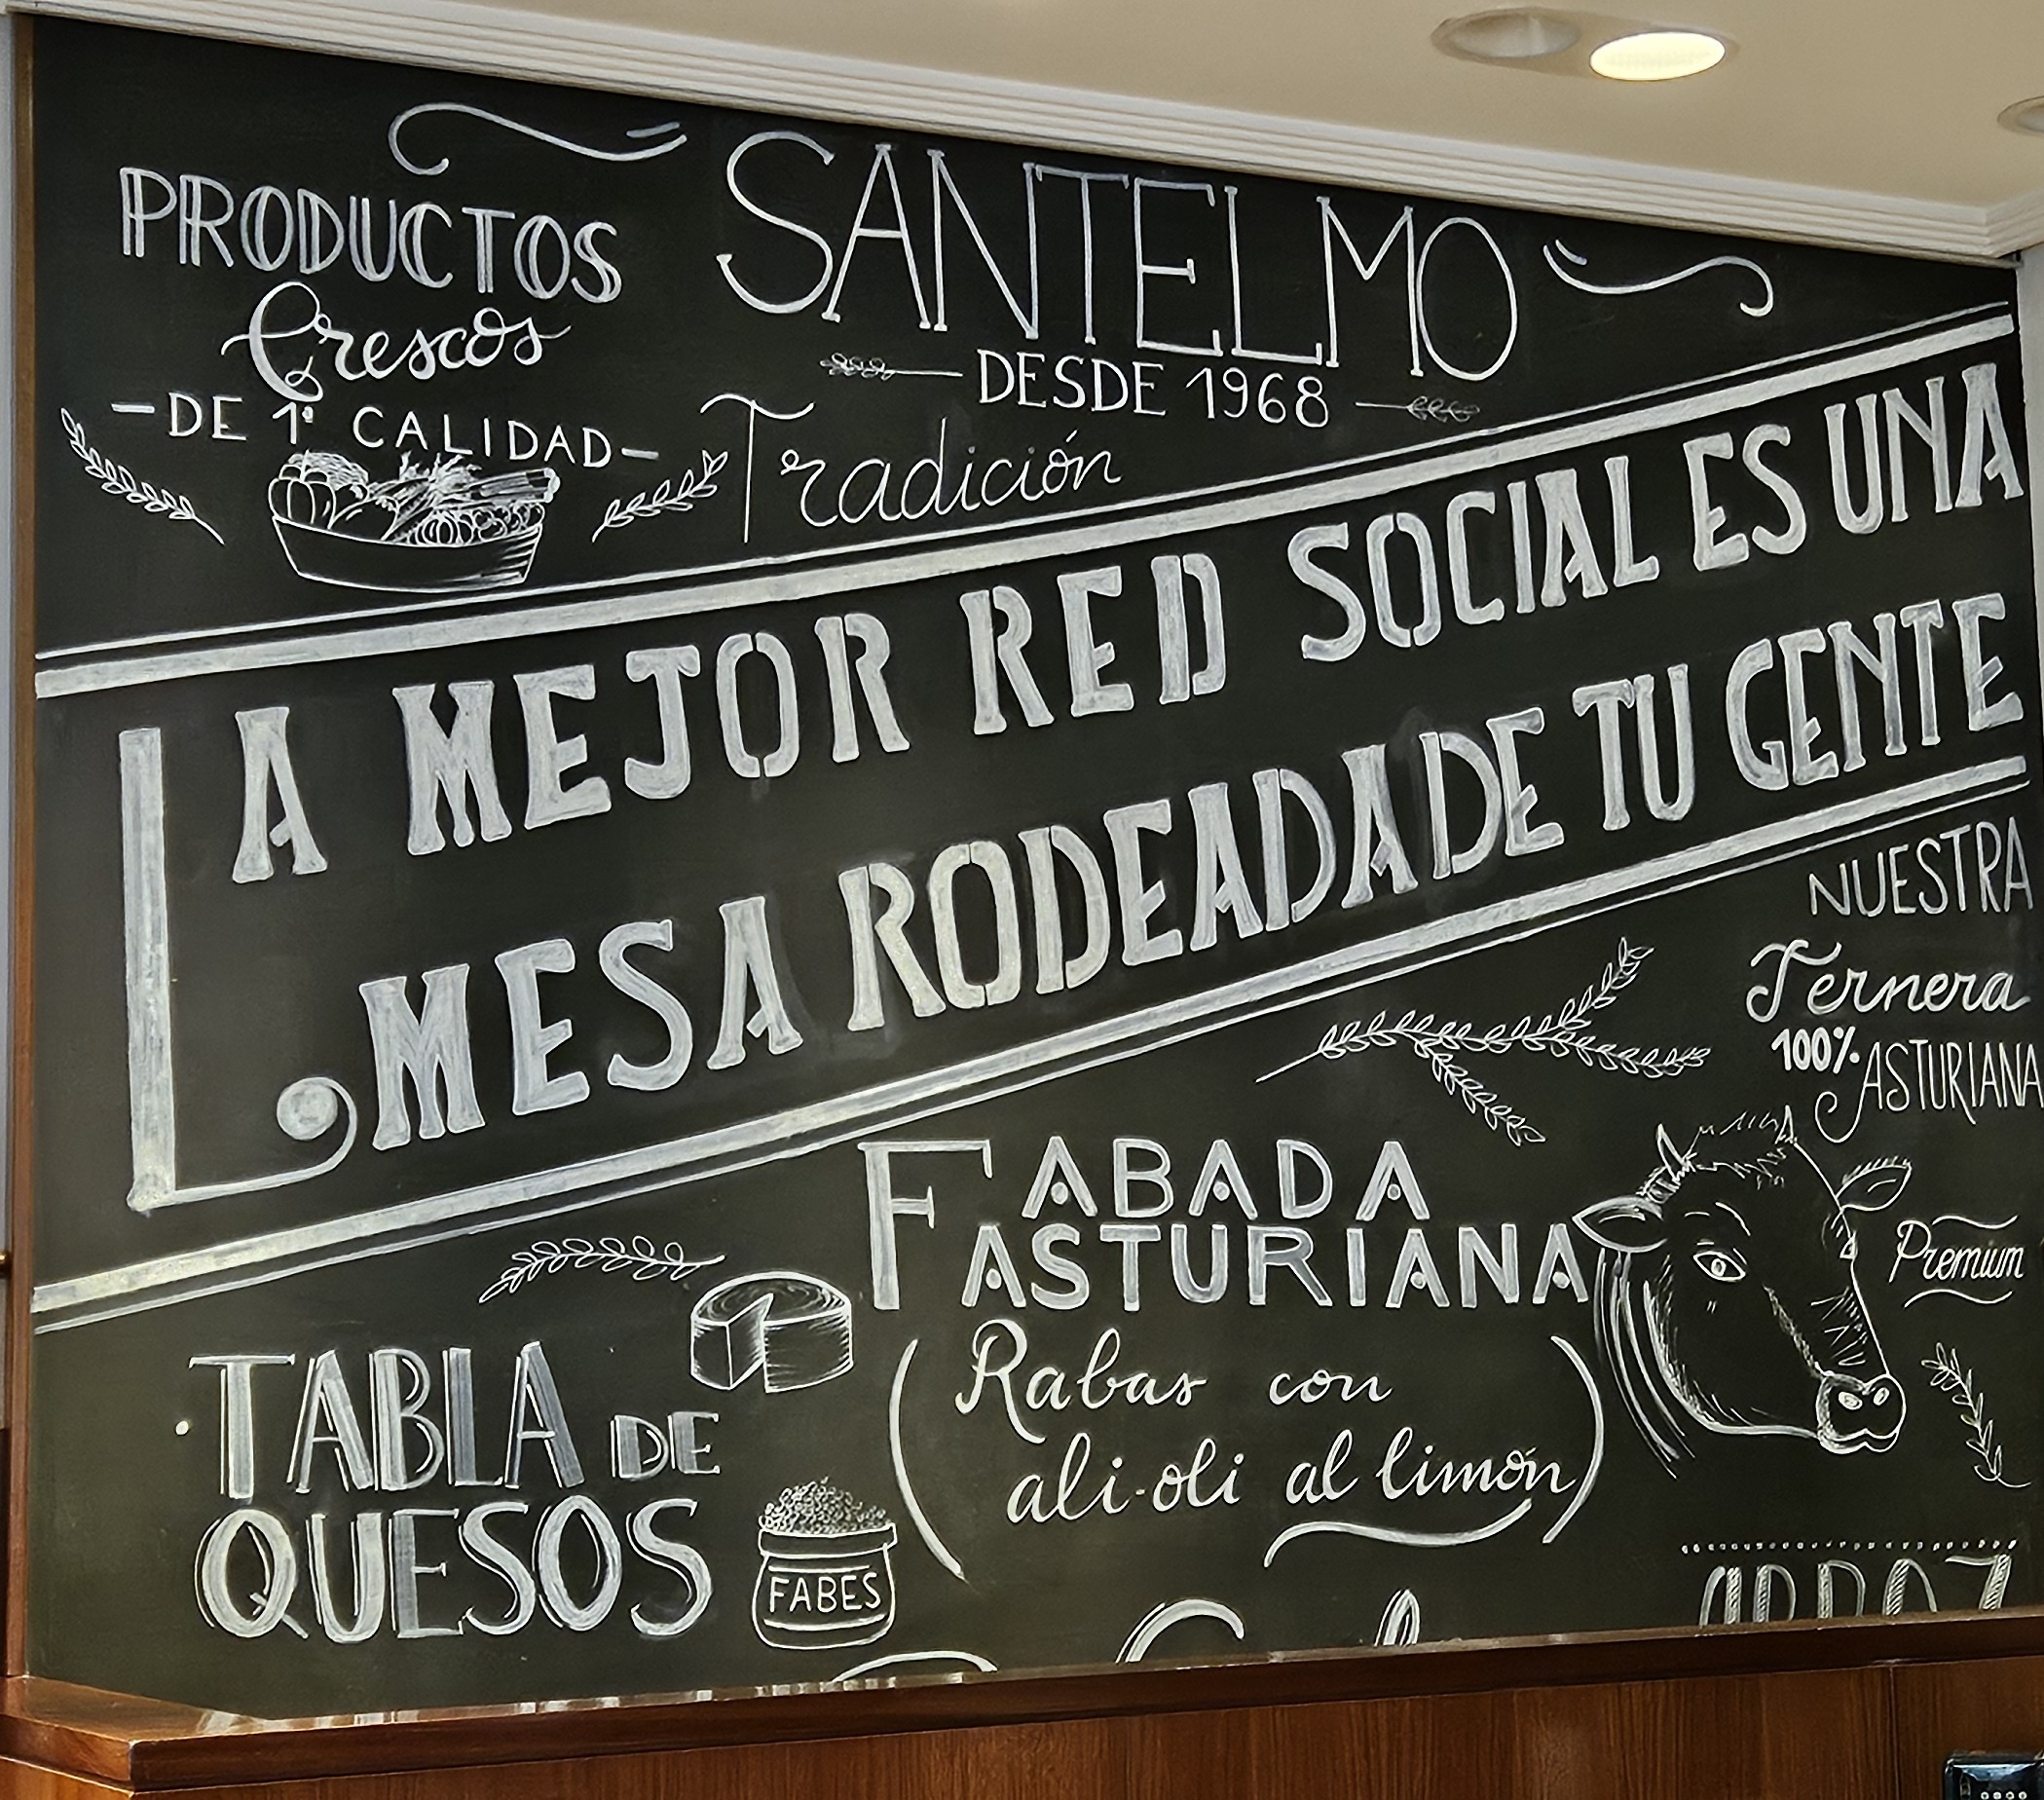 PRODUCTOS
frescos
-DE 1ª CALIDAD-
SANTELMO
DESDE 1968
Tradición
LA MEJOR RED SOCIAL ES UNA
MESA RODEADA DE TU GENTE
NUESTRA
Ternera
100% ASTURIANA
Premium
FABADA
ASTURIANA
(Rabas con
ali-oli al limón)
TABLA DE
QUESOS
FABES
ARROZ